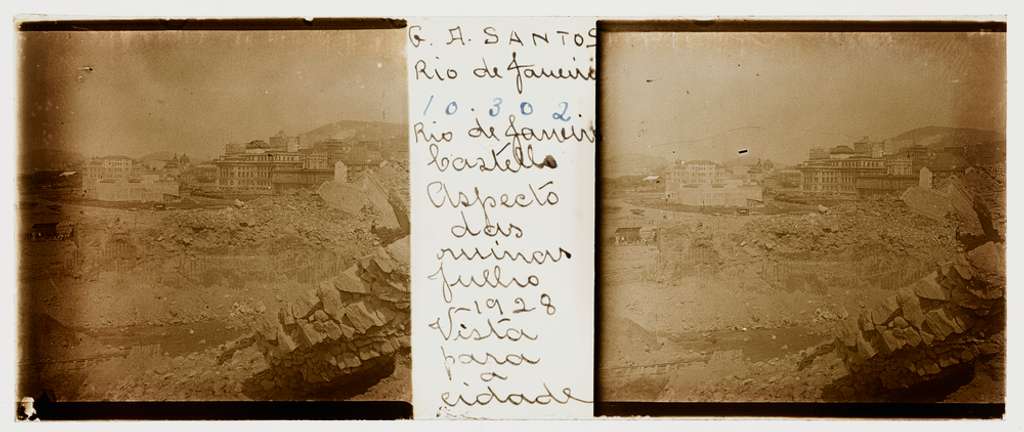 G. A. SANTOS
Rio de Janeiro
10.302
Rio de Janeiro
Castello
Aspecto
das
ruinas
Julho
1928
Vista
para
a
cidade